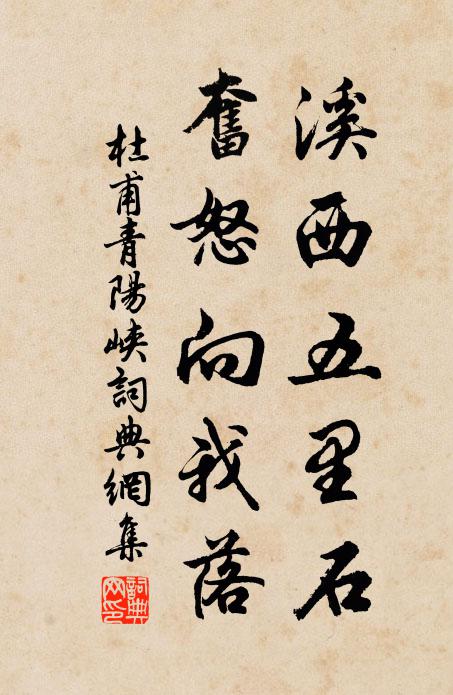 溪西五里石
奮怒向我落
杜甫青陽峽詞典網集
詞典网印